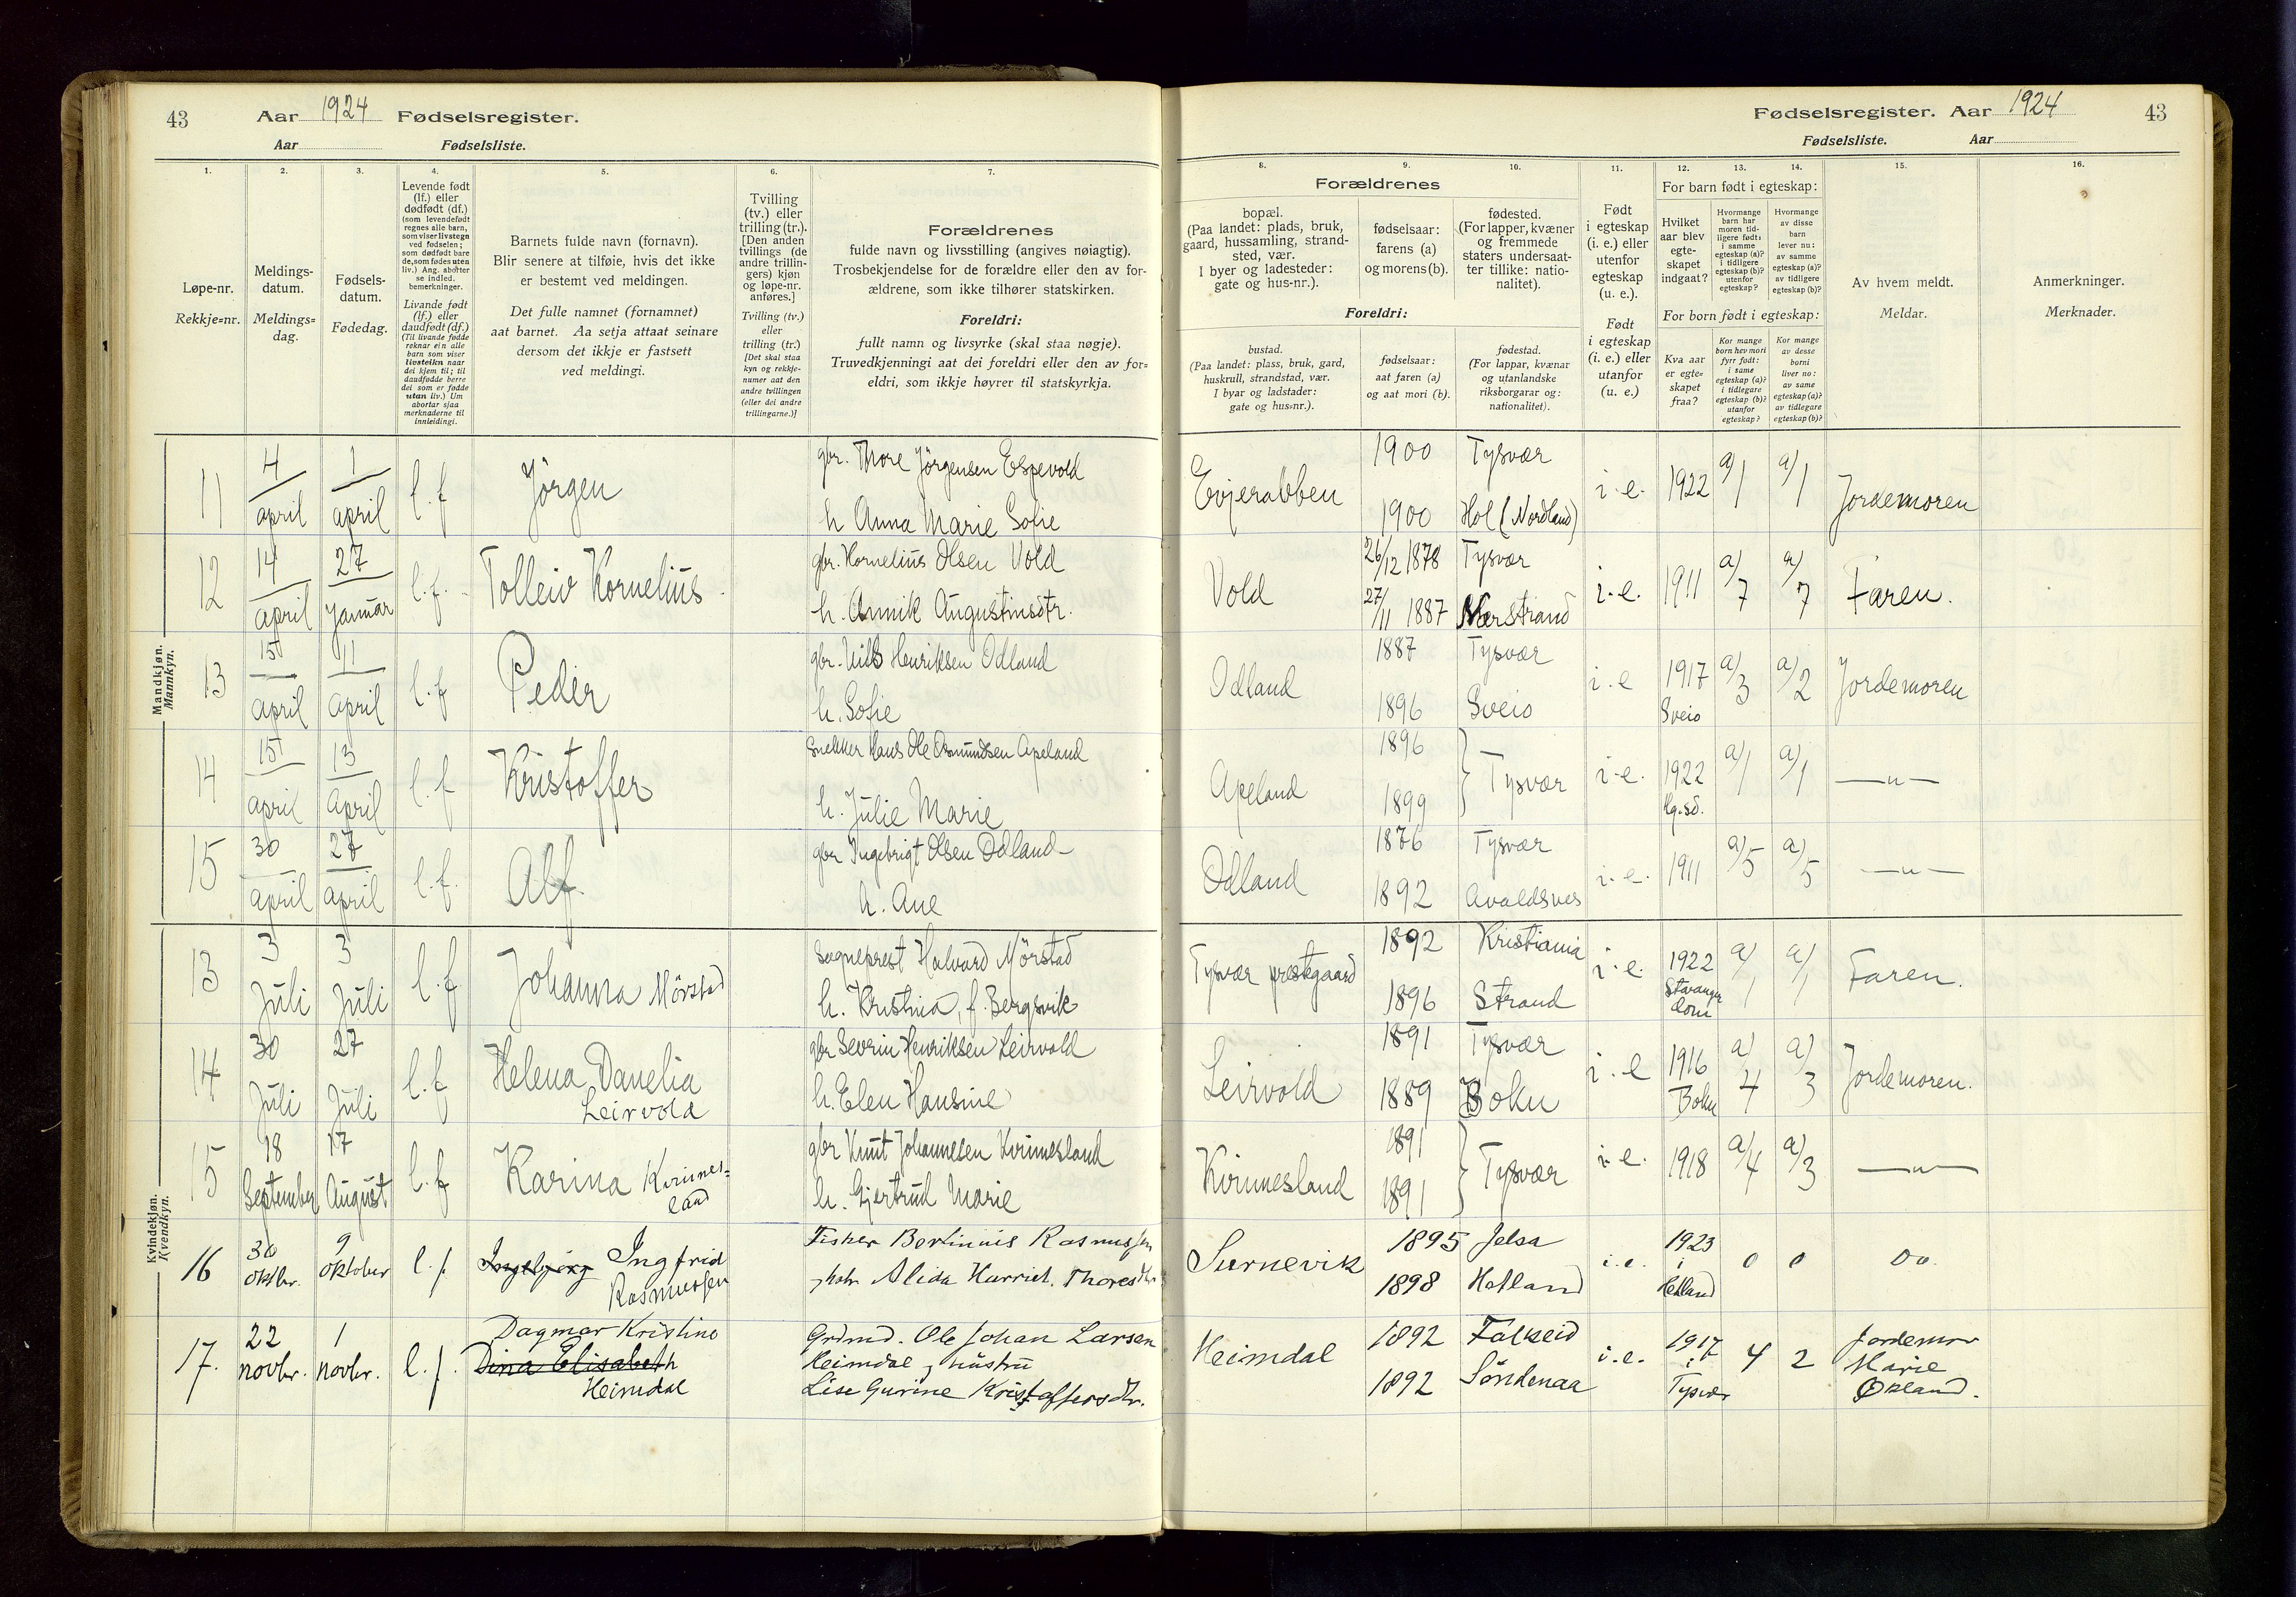 43 Aar 1924 Fødselsregister.
Aar Fødselsliste.
Fødselsregister. Aar 1924 43
Fødselsliste. Aar
1.
Løpe-nr.
Rekkje=nr.
2.
Meldings-
datum.
Meldings=
dag.
3.
Fødsels-
datum.
Fødedag.
4.
Levende født
(lf.) eller
dødfødt (df.)
(som levendefødt
regnes alle barn,
som viser livstegn
ved fødselen;
som dødfødt bare
de, som fødes uten
liv.) Ang. aborter
se indled.
bemerkninger.
Livande født
(lf.) eller
daudfødt (df.)
(Til livande fødde
reknar ein alle
barn som viser
livsteikn naar
dei kjem til; til
daudfødde berre
dei som er fødde
utan liv.) Um
abortar sjaa
merknaderne til
innleidingi.
5.
Barnets fulde navn (fornavn).
Blir senere at tilføie, hvis det ikke
er bestemt ved meldingen.
Det fulle namnet (fornamnet)
aat barnet. Aa setja attaat seinare
dersom det ikkje er fastsett
ved meldingi.
6.
Tvilling
(tv.) eller
trilling (tr.).
[Den anden
tvillings (de
andre trillin-
gers) kjøn
og løpe-nr.
anføres.]
Tvilling (tv.)
eller
trilling (tr.)
[Det skal staa
kyn og rekkje-
numer aat den
andre tvillingen
(eller dei andre
trillingarne.)]
7.
Forældrenes
fulde navn og livsstilling (angives nøiagtig).
Trosbekjendelse for de forældre eller den av for-
ældrene, som ikke tilhører statskirken.
Foreldri:
fullt namn og livsyrke (skal staa nøgje).
Truvedkjenningi aat dei foreldri eller den av for=
eldri, som ikkje høyrer til statskyrkja.
8.
Forældrenes
bopæl.
(Paa landet: plads, bruk,
gaard, hussamling, strand-
sted, vær.
I byer og ladesteder:
gate og hus-nr.).
Foreldri:
bustad.
(Paa landet: plass, bruk, gard,
huskrull, strandstad, vær.
I byar og ladstader:
gate og hus=nr.).
9.
fødselsaar:
farens (a)
og morens (b).
fødselsaar:
aat faren (a)
og aat mori (b).
10.
fødested.
(For lapper, kvæner
og fremmede
staters undersaat-
ter tillike: natio-
nalitet).
fødestad.
(For lappar, kvænar
og utanlandske
riksborgarar og:
nationalitet).
11.
Født
i egteskap
(i. e.) eller
utenfor
egteskap
(u. e.).
Født
i egteskap
(i. e.) eller
utanfor
(u. e.)
12. 13. 14.
For barn født i egteskap:
Hvilket
aar blev
egte-
skapet
indgaat?
Hvormange
barn har
moren tid-
ligere født:
i samme
egteskap (a)?
i tidligere
egteskap (b)?
utenfor
egteskap?
Hvormange
av disse
barn
lever nu:
av samme
egteskap (a)?
av tidligere
egteskap (b)?
For born født i egteskap:
Kva aar
er egte=
skapet
fraa?
Kor mange
born hev mori
fyrr født:
i same
egteskap (a)?
i tidlegare
egteskap (b)?
utanfor
egteskap?
Kor mange
av desse
borni
liver no:
av same
egteskap (a)?
av tidlegare
egteskap (b)?
15.
Av hvem meldt.
Meldar.
16.
Anmerkninger.
Merknader.
Mandkjøn.
Mannkyn.
11 4 april 1 april l.f Jörgen
gbr. Thore Jörgensen Espevold
h Anna Marie Sofie
Evjerabben 1900 Tysvær
1900 Hol (Nordland)
i.e. 1922 a/1 a/1 Jordemoren
12 14 april 27 Januar l.f. Tolleiv Kornelius
gbr. Kornelius Olsen Vold
h. Annik Augustinsdtr.
Vold 26/12 1878 Tysvær
27/11 1887 Nerstrand
i.e. 1911 a/7 a/7 Faren.
13 15 april 11 april l.f Peder
gbr. Nils Henriksen Odland
h. Sofie
Odland 1887 Tysvær
1896 Sveio
i.e 1917 Sveio a/3 a/2 Jordemoren
14 15 april 13 april l.f Kristoffer
Snekker Hans Ole Osmundsen Apeland
h. Julie Marie
Apeland 1896
1899 } Tysvær
i.e. 1922 Hg.sd. a/1 a/1 —"—
15 30 april 27 april l.f. Alf.
gbr Ingebrigt Olsen Odland
h. Ane
Odland 1876 Tysvær
1892 Avaldsnes
i.e. 1911 a/5 a/5 —"—
Kvindekjøn.
Kvendkyn.
13 3 Juli 3 Juli l.f. Johanna Mörstad
Sogneprest Halvard Mörstad
h. Kristina, f. Bergsvik
Tysvær prestegaard 1892 Kristiania
1896 Strand
i.e. 1922 Stavanger dom a/1 a/1 Faren.
14 30 Juli 27 Juli l.f Helena Danelia
Leirvold
gbr Sevrin Henriksen Leirvold
h. Elen Hansine
Leirvold 1891 Tysvær
1889 Bokn
i.e 1916 Bokn a/4 a/3 Jordemoren.
15 18 September 17 August l.f Karina Kvinnes=
land
gbr Knut Johannesen Kvinnesland
h. Gjertrud Marie
Kvinnesland 1891
1891 } Tysvær
i.e. 1918 a/4 a/3 —"—
16 30 oktbr. 9 oktober l.f Ingebjørg Ingfrid
Rasmussen
Fisker Bertinius Rasmussen
, hstr Alida Harriet. Thoresdtr
1895 Jelsa
1898 Hetland
i.e. 1923 i Hetland 0 0 Do.
17. 22 novbr. 1 novbr. l.f. Dagmar Kristine
Dina Elisabeth
Heimdal
Grdmd. Ole Johan Larsen
Heimdal, hustru
Lise Gurine Kristoffersdtr.
Heimdal 1892 Falkeid
1892 Söndenaa
i.e. 1917 i Tysvær 4 2 Jordemor
Marie
Økland.